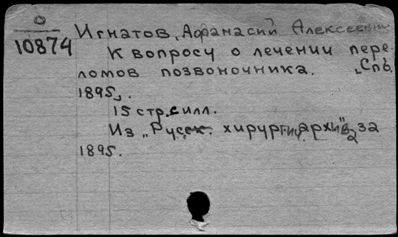 О
10874
Игнатов, Афанасий Алексеевич
К вопросу о лечении пере
ломов позвоночника. Спб.
1895,.
15 стр. с илл.
Из „Русск. хирургич. архива" за
1895.